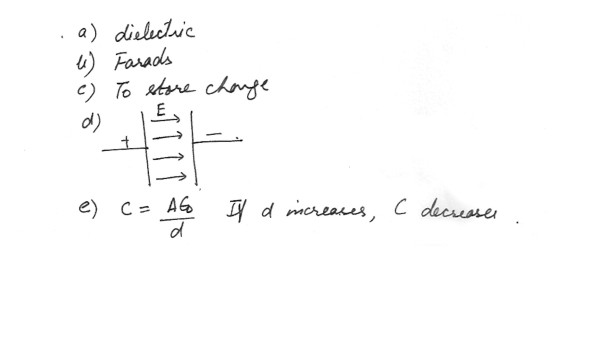 a) dielectric
b) Farads
c) To store charge
d)
E
+ −
e) C = Aε₀/d If d increases, C decreases.